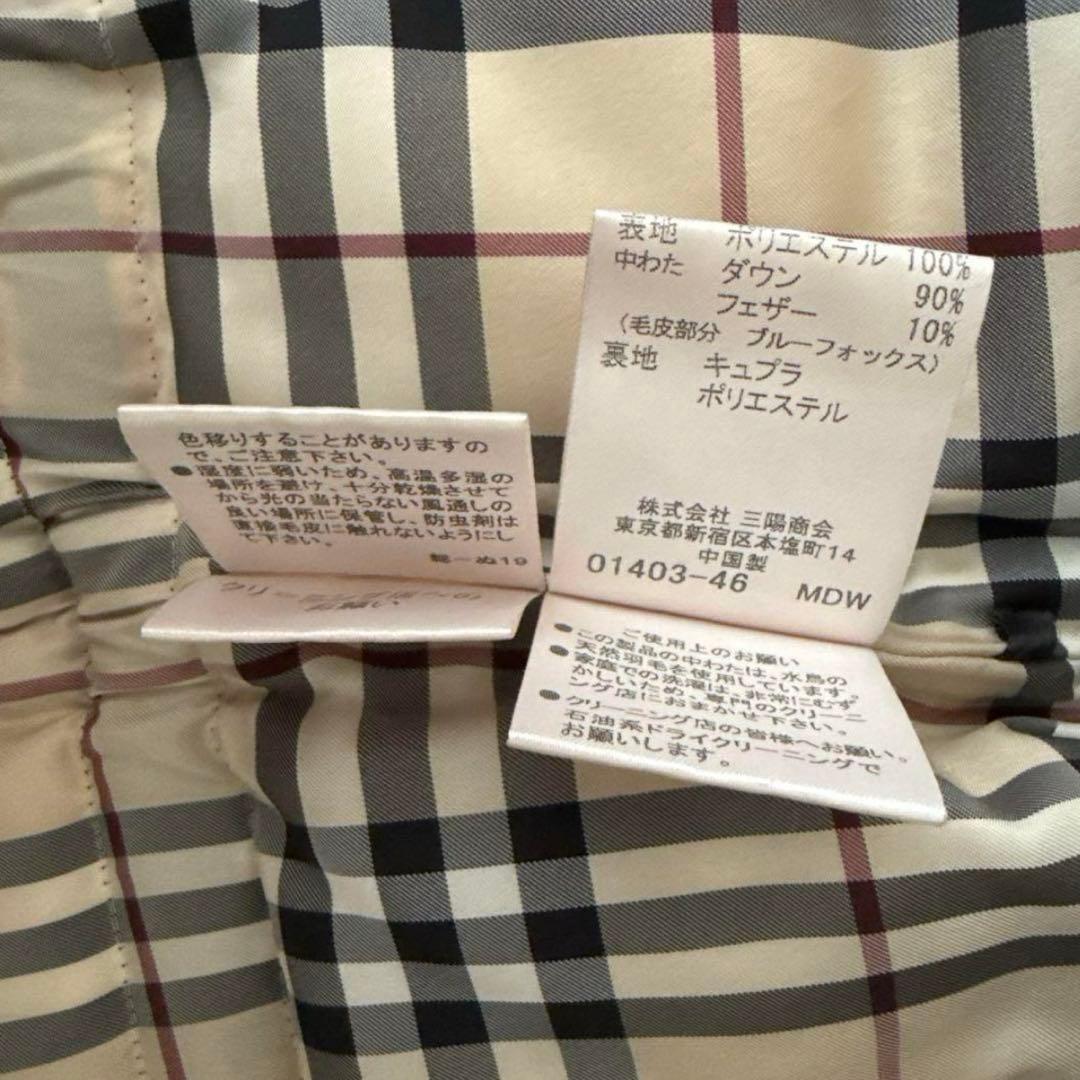 表地 ポリエステル 100%
中わた ダウン 90%
フェザー 10%
(毛皮部分 ブルーフォックス)
裏地 キュプラ
ポリエステル
株式会社 三陽商会
東京都新宿区本塩町14
中国製
01403-46 MDW
色移りすることがありますの
で、ご注意下さい。
●湿度に弱いため、高温多湿の
場所を避け、十分乾燥させて
から光の当たらない風通しの
良い場所に保管し、防虫剤は
直接毛皮に触れないようにし
て下さい。
総ーぬ19
ご使用上のお願い
●この製品の中わたは、水鳥の
天然羽毛を使用しています。
●家庭での洗濯は、非常にむず
かしいため、専門のクリーニ
ング店におまかせ下さい。
●クリーニング店の皆様へお願い。
石油系ドライクリーニングで
お願いします。